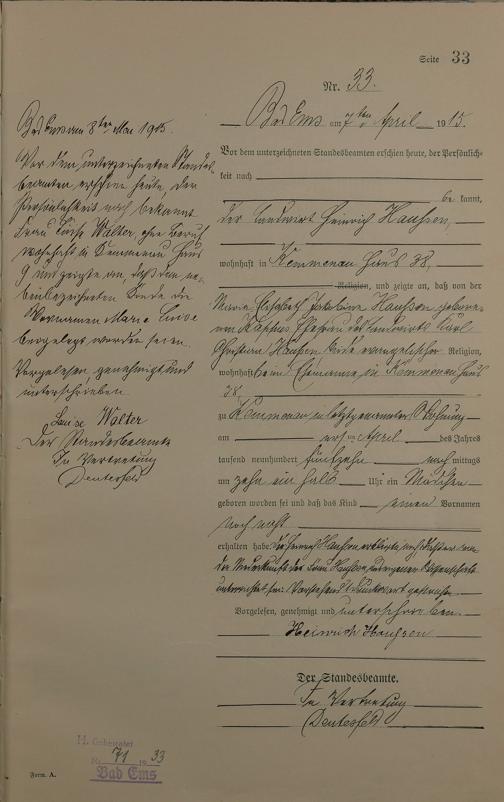 Seite 33
Nr. 33.
Bad Ems am 7ten April 1915.
Vor dem unterzeichneten Standesbeamten erschien heute, der Persönlich-
keit nach
be kannt,
der Landwirt Heinrich Haußen,
wohnhaft in Kemmenau Haus 38,
Religion, und zeigte an, daß von der
Marie Elisabeth Haußen gebore-
nen Ehefrau des Landwirts Karl
Christian Haußen, beide evangelischer Religion,
wohnhaft beim Ehemanne in Kemmenau Haus
38
zu Kemmenau in letztgenannter Wohnung
am ersten April des Jahres
tausend neunhundert fünfzehn nachmittags
um zehn ein halb Uhr ein Mädchen
geboren worden sei und daß das Kind einen Vornamen
noch nicht
erhalten habe. Heinrich Haußen erklärte, daß er von
der Niederkunft der Frau Haußen aus eigener Wissenschaft
unterrichtet sei. Vorstehend 1 Druckwort gestrichen.
Vorgelesen, genehmigt und unterschrieben.
Heinrich Haußen
Der Standesbeamte.
In Vertretung
Deutesfeld
Bad Ems am 8ten Mai 1915.
Vor dem unterzeichneten Standes
beamten erschien heute, der
Persönlichkeit nach bekannt
Frau Luise Walter, ohne Beruf
wohnhaft in Kemmenau Haus
9 und zeigte an, daß dem ne-
benbezeichneten Kinde die
Vornamen Marie Luise
beigelegt worden seien.
Vorgelesen, genehmigt und
unterschrieben
Luise Walter
Der Standesbeamte
In Vertretung
Deutesfeld
Nr. 71 1933
Bad Ems
Form. A.